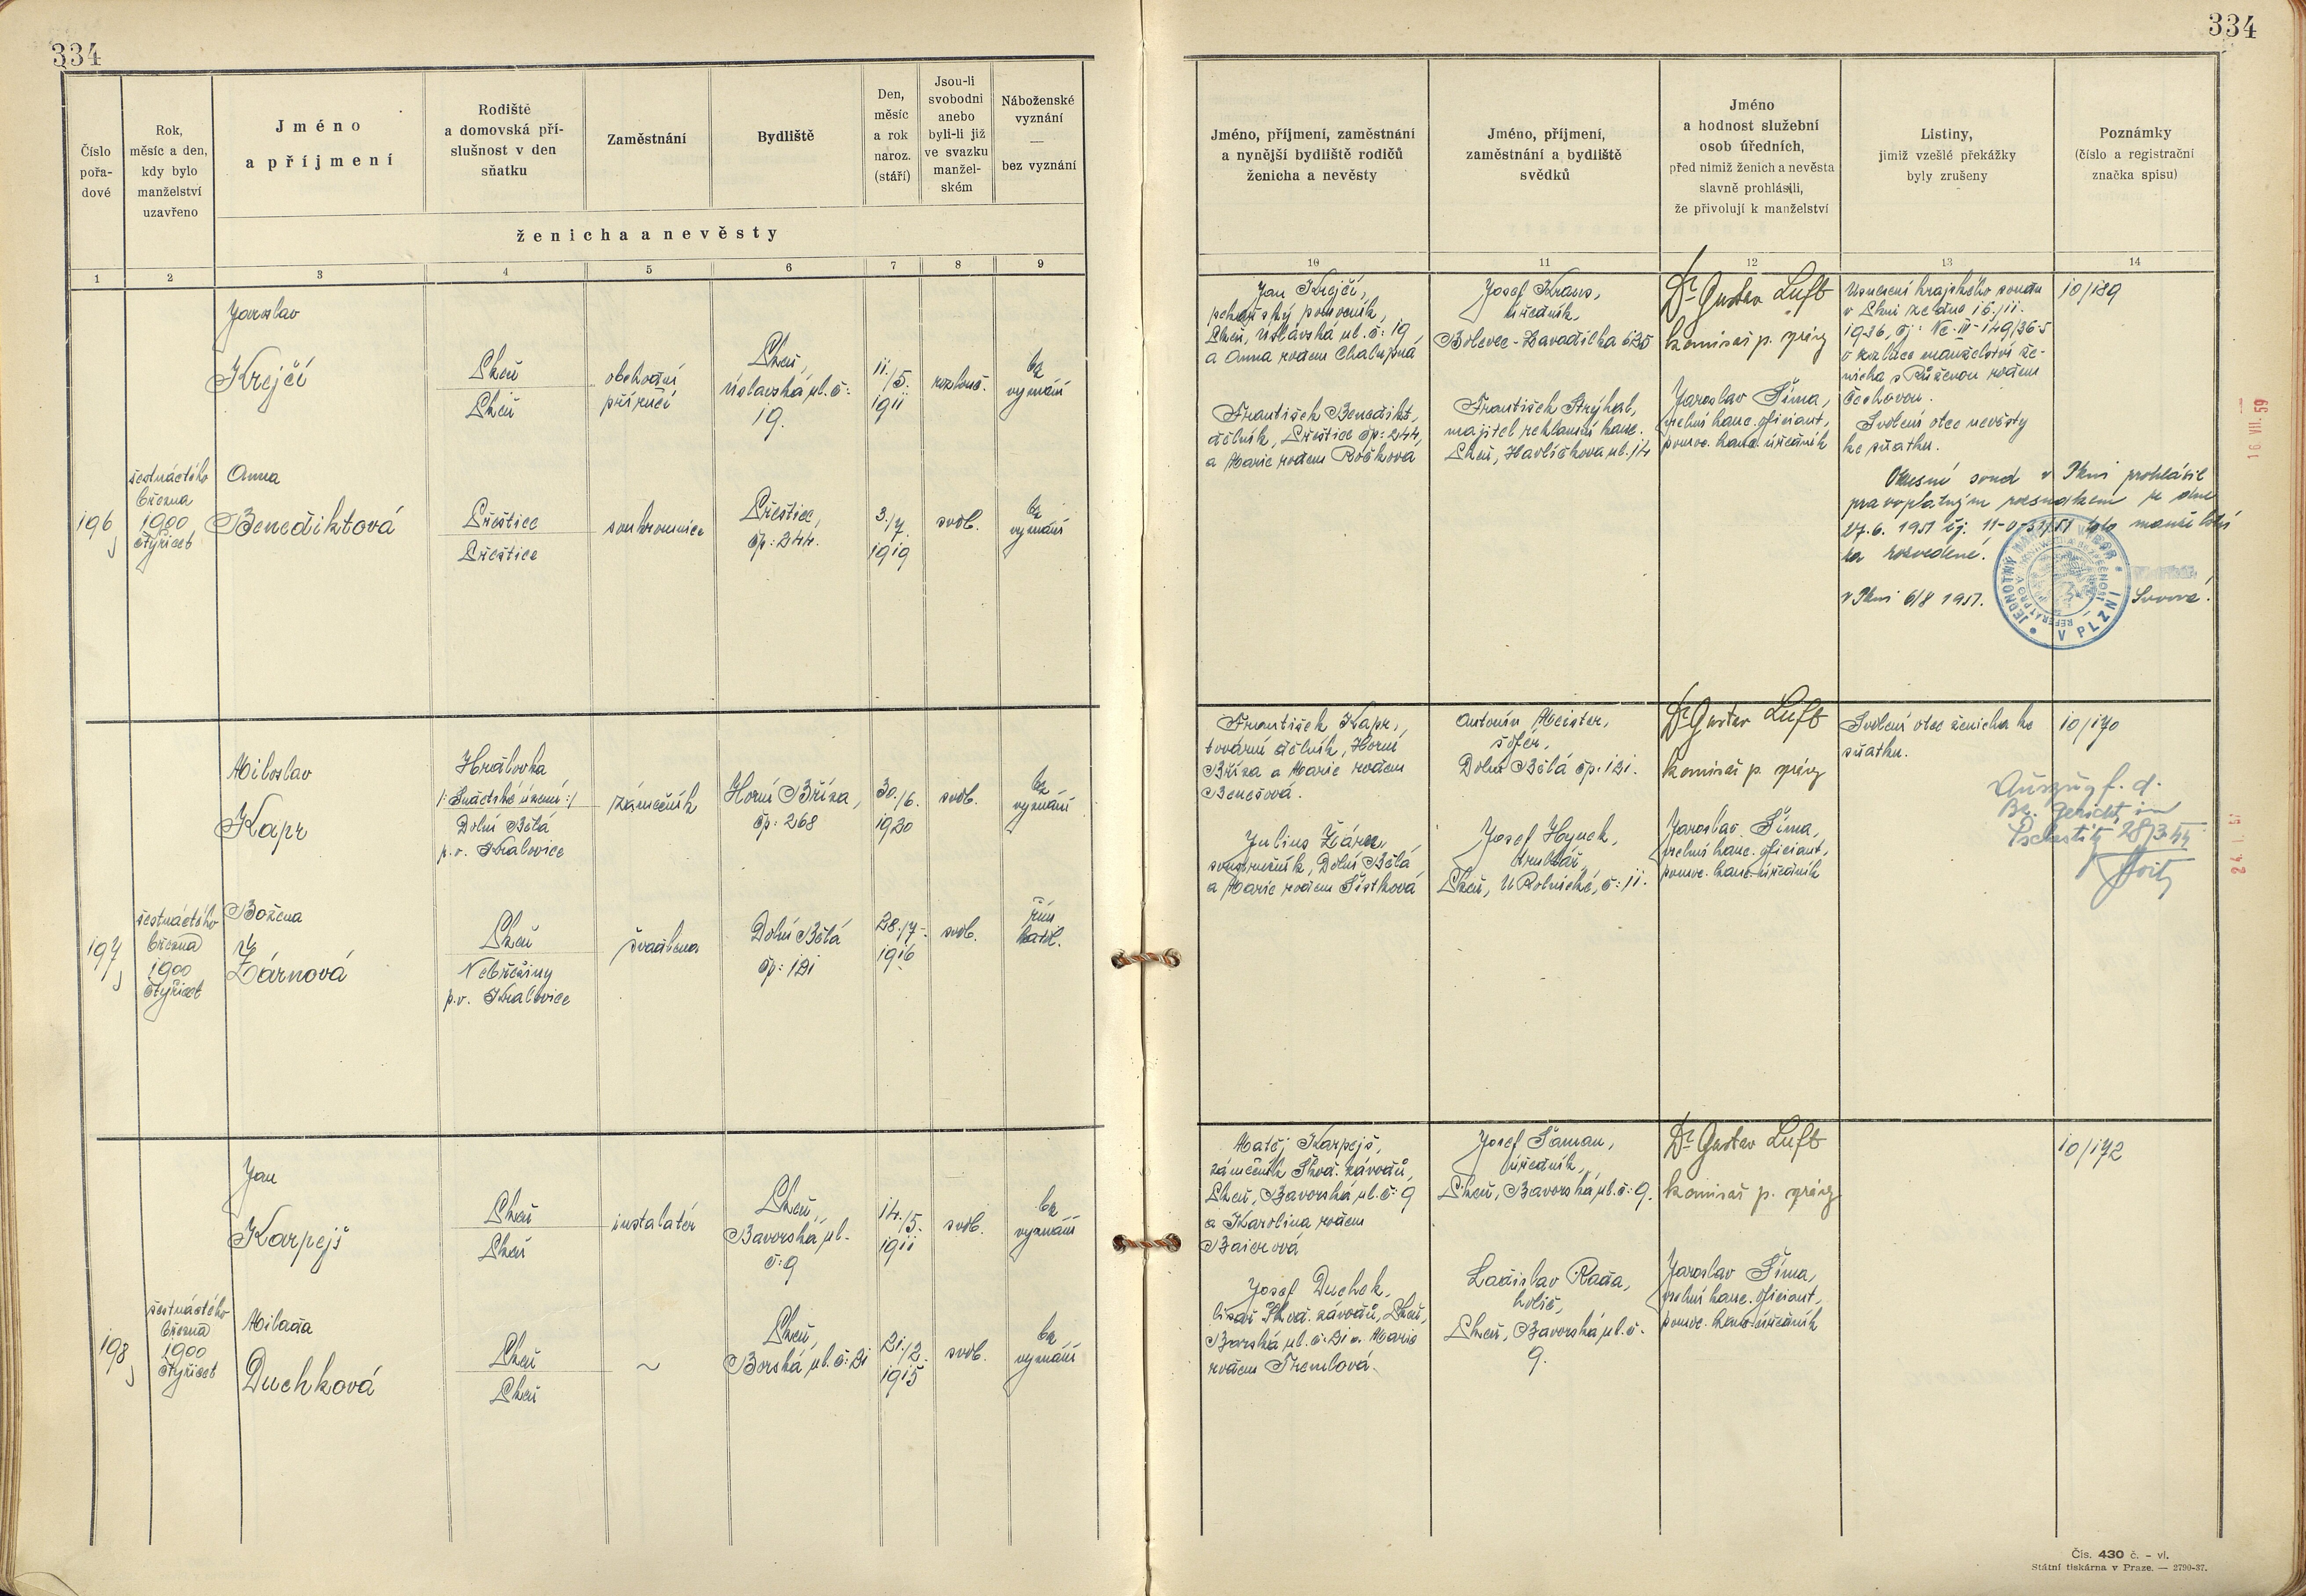 334
334
Číslo
pořa-
dové
Rok,
měsíc a den,
kdy bylo
manželství
uzavřeno
Jméno
a příjmení
Rodiště
a domovská pří-
slušnost v den
sňatku
Zaměstnání
Bydliště
Den,
měsíc
a rok
naroz.
(stáří)
Jsou-li
svobodni
anebo
byli-li již
ve svazku
manžel-
ském
Náboženské
vyznání
—
bez vyznání
ženicha a nevěsty
Jméno, příjmení, zaměstnání
a nynější bydliště rodičů
ženicha a nevěsty
Jméno, příjmení,
zaměstnání a bydliště
svědků
Jméno
a hodnost služební
osob úředních,
před nimiž ženich a nevěsta
slavně prohlásili,
že přivolují k manželství
Listiny,
jimiž vzešlé překážky
byly zrušeny
Poznámky
(číslo a registrační
značka spisu)
1 2 3 4 5 6 7 8 9 10 11 12 13 14
196
šestnáctého
března
1900
čtyřicet
Jaroslav
Krejčí
Plzeň
Plzeň
obchodní
příručí
Plzeň,
Úslavská ul. č:
19.
11./5.
1911
rozlouč.
bez
vyznání
Anna
Benediktová
Přeštice
Přeštice
soukromnice
Přeštice,
čp: 244.
3./7.
1919
svob.
bez
vyznání
Jan Krejčí,
pekařský pomocník,
Plzeň, Úslavská ul. č: 19
a Anna rodem Chalupná
František Benedikt,
dělník, Přeštice čp: 244,
a Marie rodem Rošková
Josef Kraus,
úředník,
Bolevec-Zavadilka 625
František Strýhal,
majitel reklamní kanc.
Plzeň, Havlíčkova ul. 14
Dr Gustav Luft
komisař p. správy
Jaroslav Šíma,
vrchní kanc. oficiant,
pomoc. kanc. úředník
Usnesení krajského soudu
v Plzni ze dne 16./11.
1936, čj: Nc-III-149/36-5
o rozluce manželství že-
nicha s Růženou rodem
Čechovou.
Svolení otce nevěsty
ke sňatku.
Okresní soud v Plzni prohlásil
pravoplatným rozsudkem ze dne
27.6.1951 toto manželství
za rozvedené.
v Plzni 6/8 1951.
JEDNOTNÝ NÁRODNÍ VÝBOR
V PLZNI
10/189
16. VII. 59
197
šestnáctého
března
1900
čtyřicet
Miloslav
Kapr
Hrádovka
Dolní Bělá
p.o. Kralovice
zámečník
Horní Bříza,
čp: 268
30./6.
1920
svob.
bez
vyznání
Božena
Žárnová
Plzeň
Nebřeziny
p.o. Kralovice
švadlena
Dolní Bělá
čp: 121
28./7.
1916
svob.
řím.
katol.
František Kapr,
tovární dělník, Horní
Bříza a Marie rodem
Benešová.
Julius Žárn,
soustružník, Dolní Bělá
a Marie rodem Šístková
Antonín Meister,
šofér,
Dolní Bělá čp. 121.
Josef Hynek,
truhlář,
Plzeň, U Rolnické, č: 11.
Dr Gustav Luft
komisař p. správy
Jaroslav Šíma,
vrchní kanc. oficiant,
pomoc. kanc. úředník
Svolení otce ženicha ke
sňatku.
10/170
Auszug f. d.
Bz. Gericht in
28/3.44
198
šestnáctého
března
1900
čtyřicet
Jan
Karpejš
Plzeň
Plzeň
instalatér
Plzeň,
Bavorská ul.
č: 9
14./5.
1911
svob.
bez
vyznání
Milada
Duchková
Plzeň
Plzeň
~
Plzeň,
Borská ul. č: 21
21./2.
1915
svob.
bez
vyznání
Matěj Karpejš,
zámečník Škod. závodů,
Plzeň, Bavorská ul. č: 9
a Karolina rodem
Baierová
Josef Duchek,
lisař Škod. závodů, Plzeň,
Borská ul. č: 21 a Marie
rodem Tremlová.
Josef Šaman,
úředník,
Plzeň, Bavorská ul. č: 9.
Ladislav Rada,
holič,
Plzeň, Bavorská ul. č.
9.
Dr Gustav Luft
komisař p. správy
Jaroslav Šíma,
vrchní kanc. oficiant,
pomoc. kanc. úředník
10/172
Čís. 430 č. - vl.
Státní tiskárna v Praze. — 2790-37.